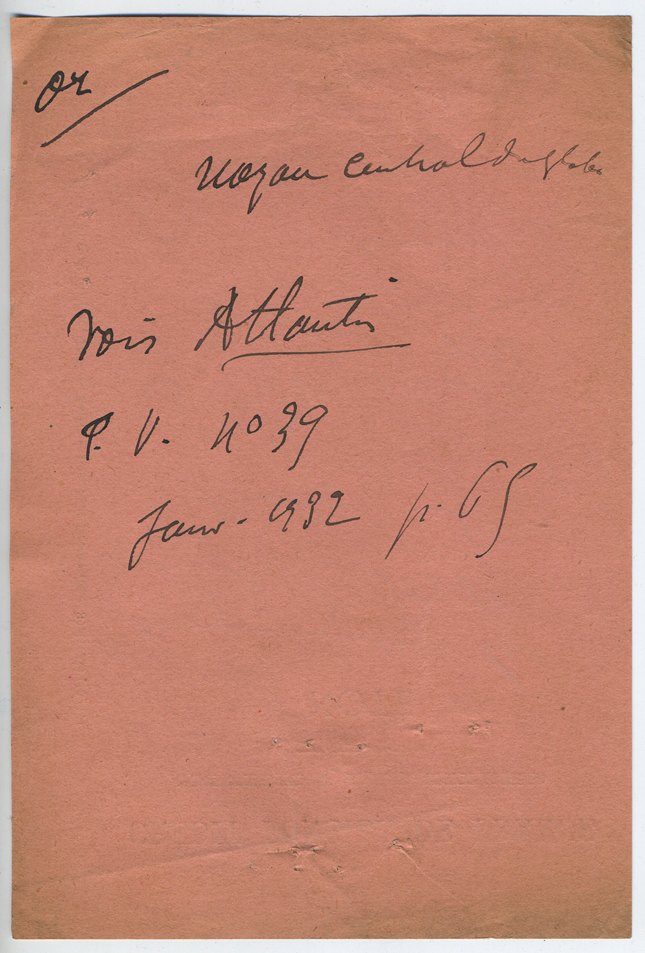 or
Noyau central du globe
Voir Atlantis
P. V. no 39
Janv. 1932 p. 65